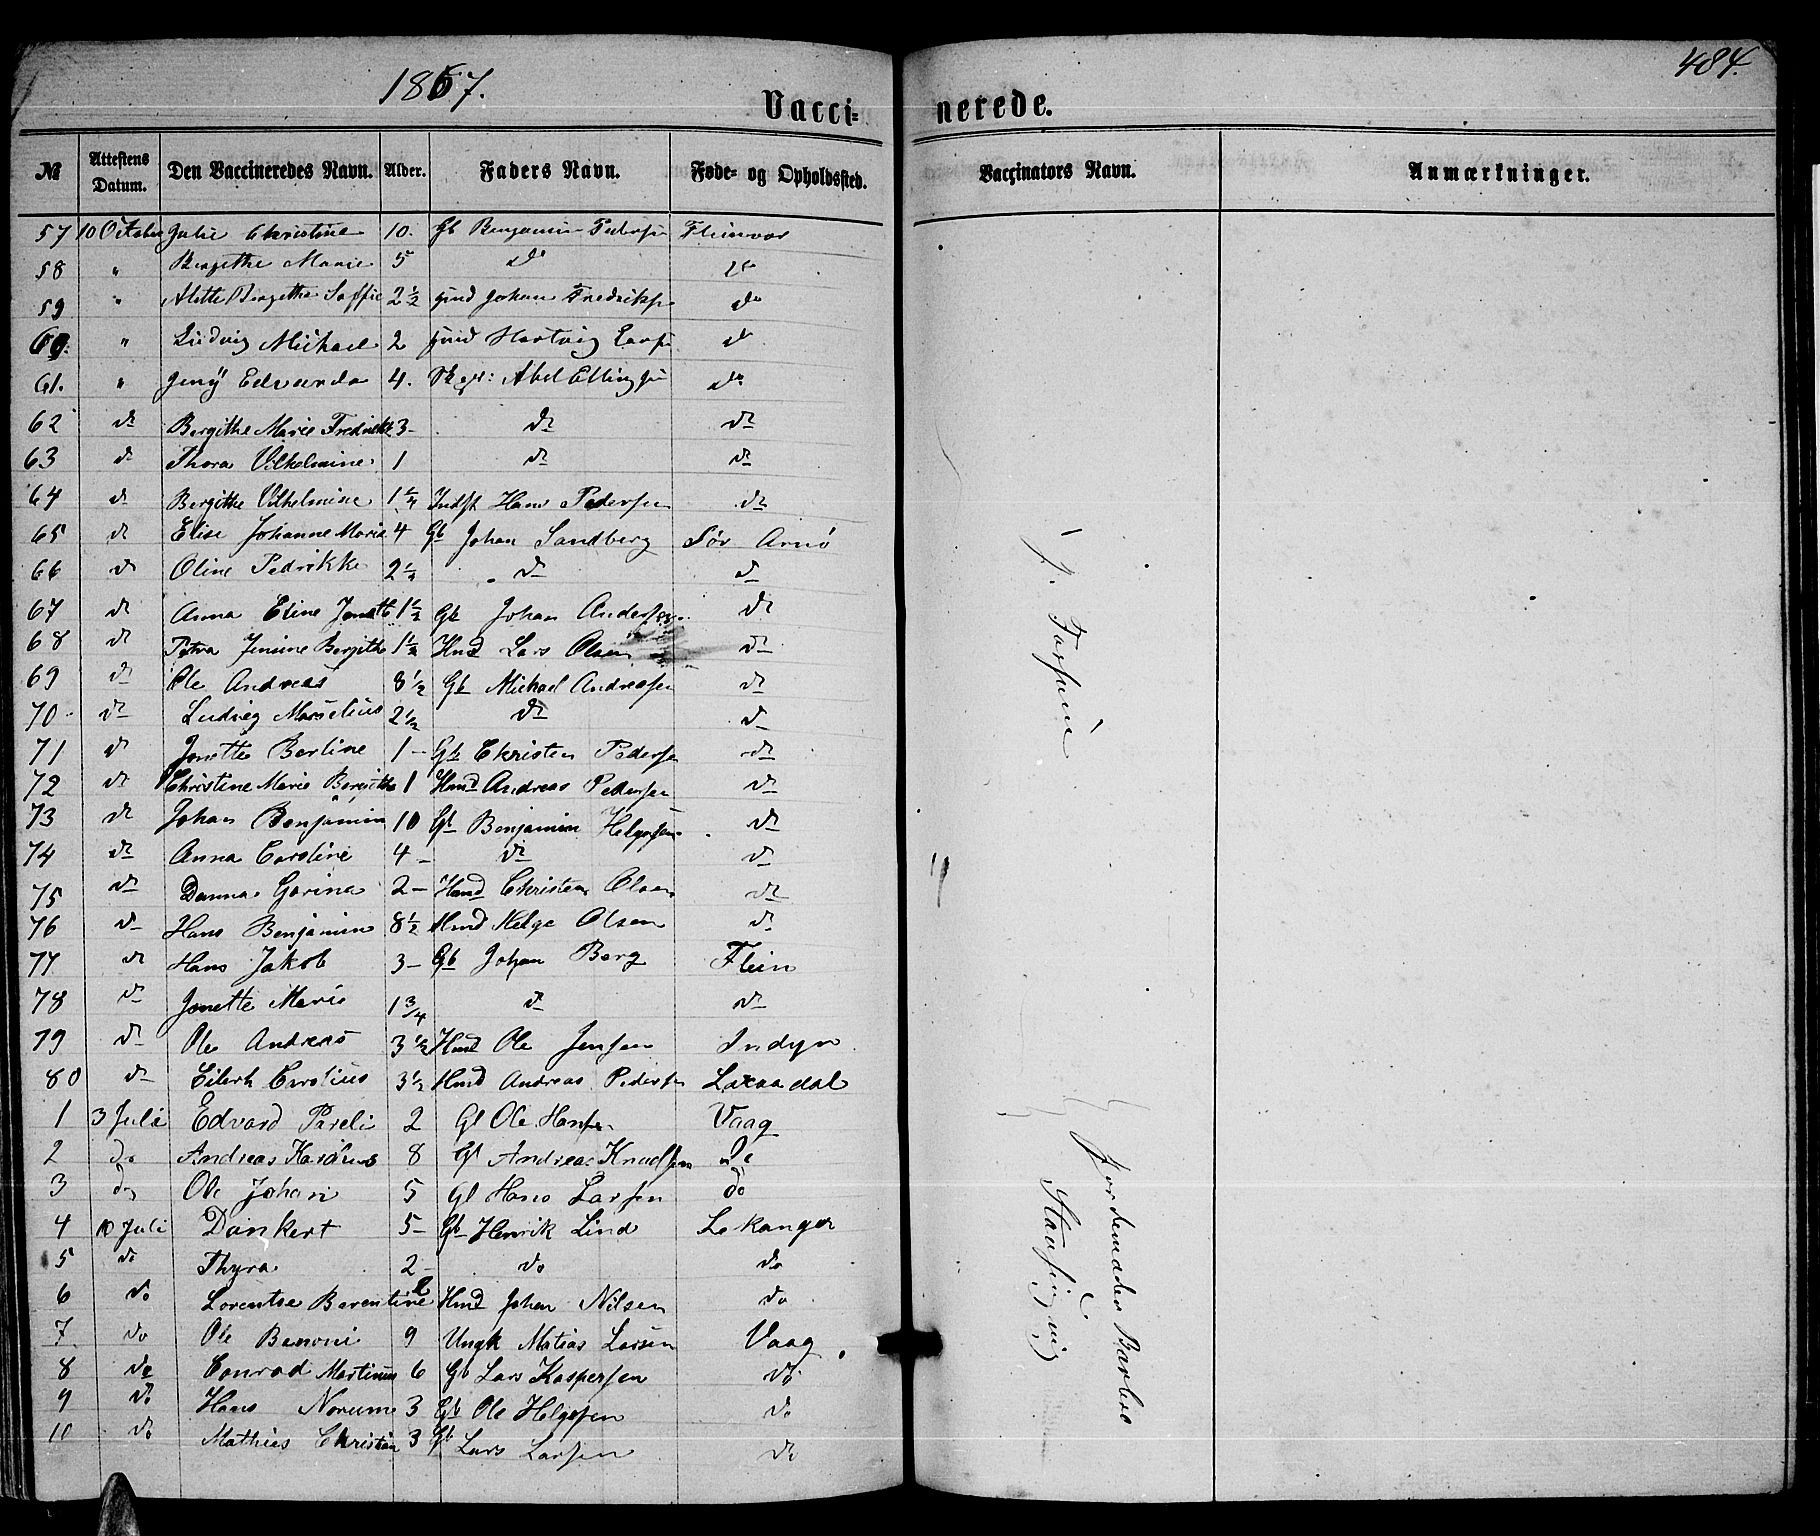 1867.
484.
Vacci= nerede.
№ Attestens Datum. Den Vaccineredes Navn. Alder. Faders Navn. Føde- og Opholdssted. Vaccinators Navn. Anmærkninger.
57 10 October Julie Christine 10. Gb Benjamin Pedersen Fleinvær
58 " Bergithe Marie 5 do do
59 " Alette Bergethe Soffie 2½ Johan Fredriks do
60. " Ludvig Michael 2 Hartvig do
61. " Jeny Edvarda 4. Abel Ellingsen do
62 do Bergithe Marie Fredrikke 3- do do
63 do Thora Vilhelmine 1 do do
64 do Bergitte Vilhelmine 1¼ Indst Hans Pedersen do
65 do Elise Johanne Marie 4 Gb Johan Sandberg Sør Arnø
66 do Oline Pedrikke 2¼ do do
67 do Anna Eline Jonette 1½ Gb Johan Andersen do
68 do Petra Jensine Bergithe 1½ Hmd Lars Olsen do
69 do Ole Andreas 8½ Gb Michael Andreasen do
70 do Ludvig Marselius 2½ do do
71 do Jonette Bertine 1 - Gb Christen Pedersen do
72 do Christine Marie Bergitte 1 Hmd Andreas Pedersen do
73 do Johan Benjamin 10 Gb Benjamin Helgesen do
74 do Anna Caroline 4 - do do
75 do Danna Gorina 2 - Hmd Christen Olsen do
76 do Hans Benjamin 8½ Hmd Helge Olsen do
77 do Hans Jakob 3 - Gb Johan Berg Flein
78 do Jonette Marie 1¾ do do
79 do Ole Andreas 3½ Hmd Ole Jensen Indyr
80 do Eilert Carolius 3½ Hmd Andreas Pedersen Laxaadal
1 3 Juli Edvard Pareli 2 Gb Ole Hansen Vaag
2 do Andreas Karolius 8 Gb Andreas Knudsen do
3 do Ole Johan 5 Gb Hans Larsen do
4 10 Juli Dankert 5 - Gb Henrik Lind Lekanger
5 do Thyra 2 - do do
6 do Lorentse Berentine 2 Hmd Johan Nilsen do
7 do Ole Benoni 9 Ungk Matias Larsen Vaag
8 do Conrad Martinus 6 Gb Lars Kaspersen do
9 do Hans Norum 3 Gb Ole Helgesen do
10 do Mathias Christian 3 Gb Lars Larsen do
J.
"
Jordemoder Barbro